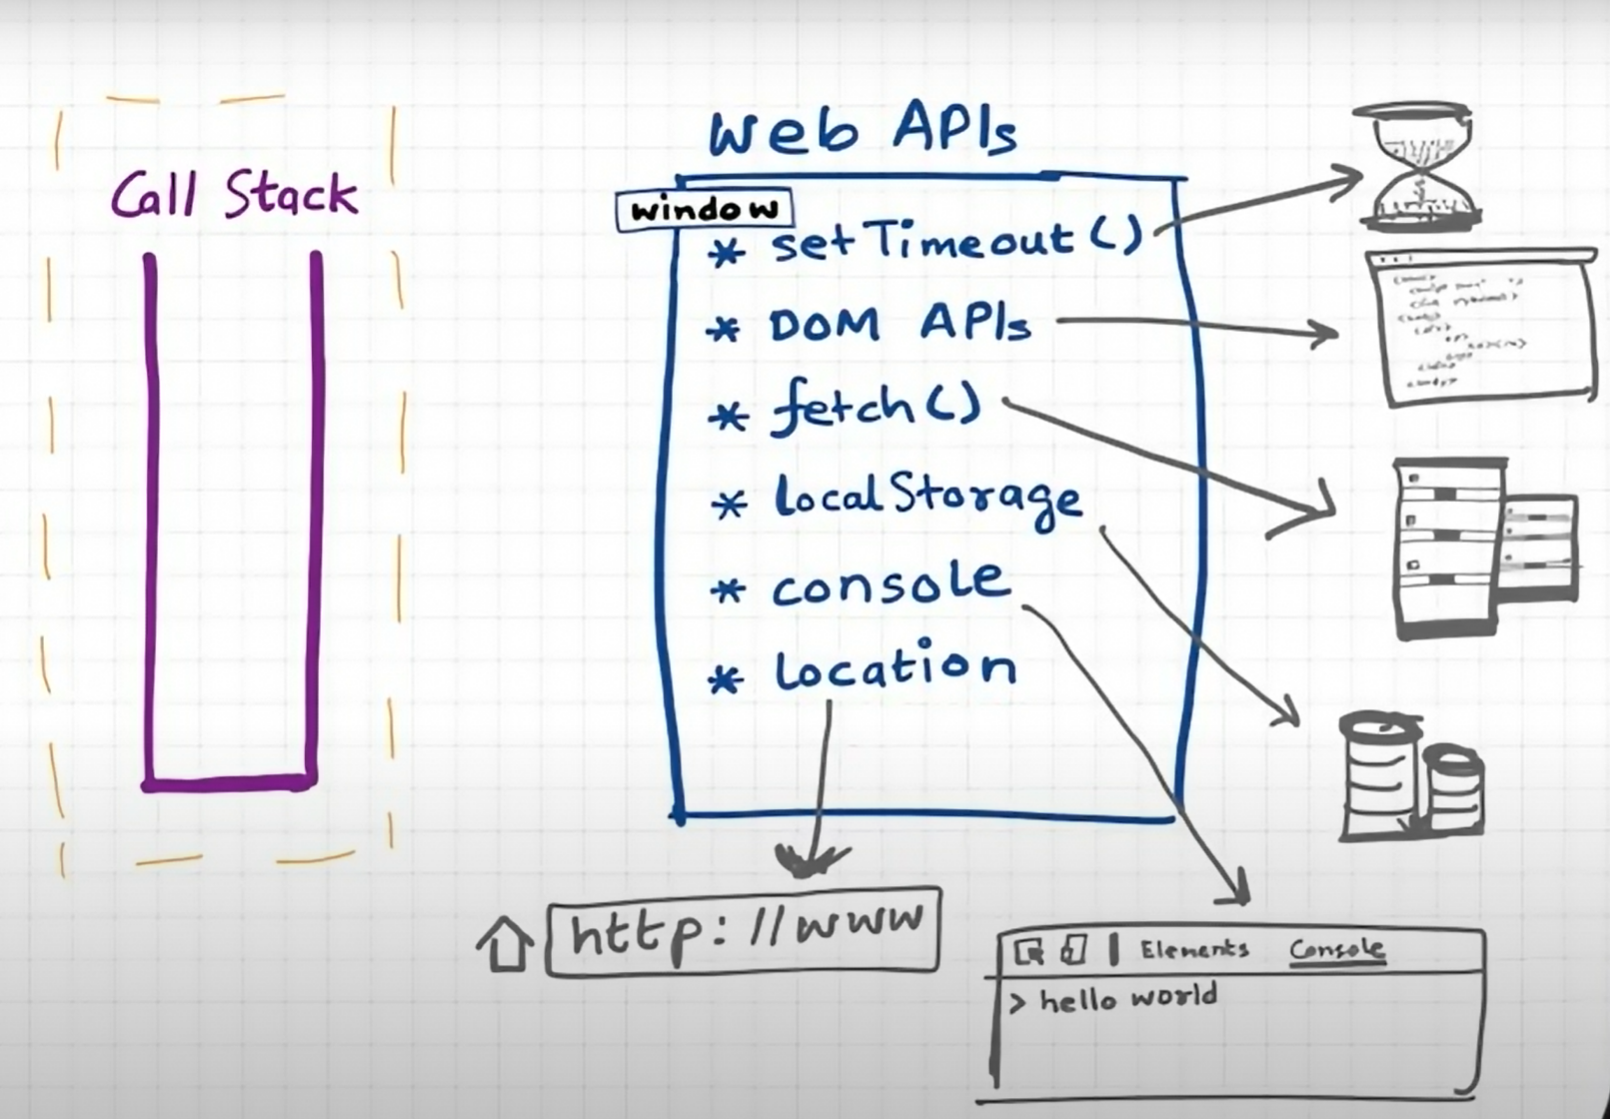 Call Stack
Web APIs
window
* setTimeout()
* DOM APIs
* fetch()
* localStorage
* console
* location
http://www
Elements Console
> hello world